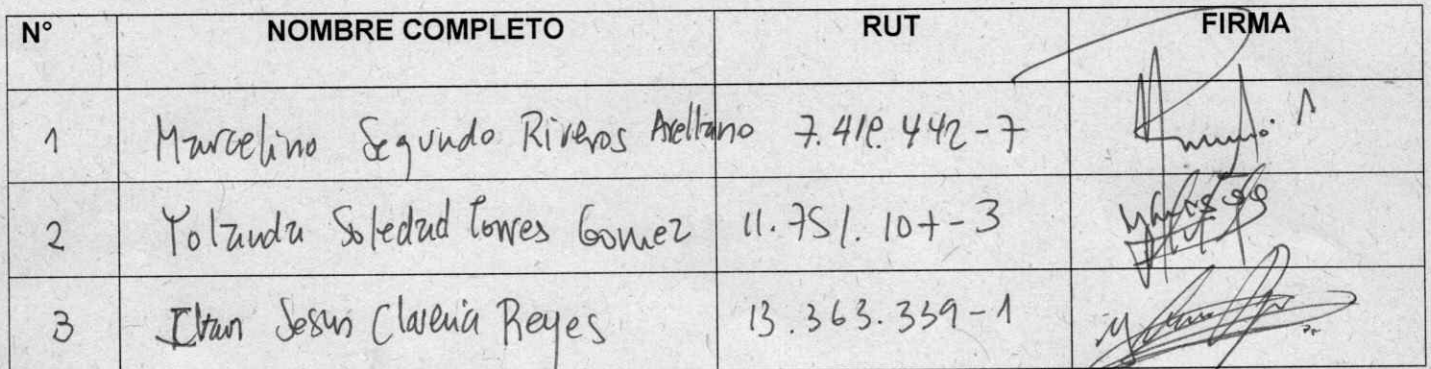 N° NOMBRE COMPLETO RUT FIRMA
1 Marcelino Segundo Riveros Arellano 7.418.442-7
2 Yolanda Soledad Torres Gomez 11.751.107-3
3 Jesus Reyes 13.363.339-1